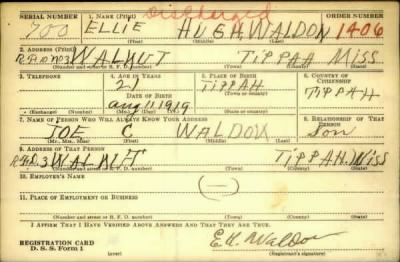 Discharged
SERIAL NUMBER 1. NAME (Print) ORDER NUMBER
700 ELLIE HUGH WALDON 1406
(First) (Middle) (Last)
2. ADDRESS (Print)
R.F.D. No 3 WALNUT TIPPAH MISS
(Number and street or R. F. D. number) (Town) (County) (State)
3. TELEPHONE 4. AGE IN YEARS 5. PLACE OF BIRTH 6. COUNTRY OF CITIZENSHIP
21 TIPPAH
DATE OF BIRTH TIPPAH
Aug 11 1919
(Exchange) (Number) (Mo.) (Day) (Yr.) (State or country)
7. NAME OF PERSON WHO WILL ALWAYS KNOW YOUR ADDRESS 8. RELATIONSHIP OF THAT PERSON
JOE C WALDON Son
(Mr., Mrs., Miss) (First) (Middle) (Last)
9. ADDRESS OF THAT PERSON
R.F.D. 3 WALNUT TIPPAH. MISS
(Number and street or R. F. D. number) (Town) (County) (State)
10. EMPLOYER'S NAME
(—)
11. PLACE OF EMPLOYMENT OR BUSINESS
(Number and street or R. F. D. number) (Town) (County) (State)
I AFFIRM THAT I HAVE VERIFIED ABOVE ANSWERS AND THAT THEY ARE TRUE.
REGISTRATION CARD E H. Waldon
D. S. S. Form 1 (over) (Registrant's signature)